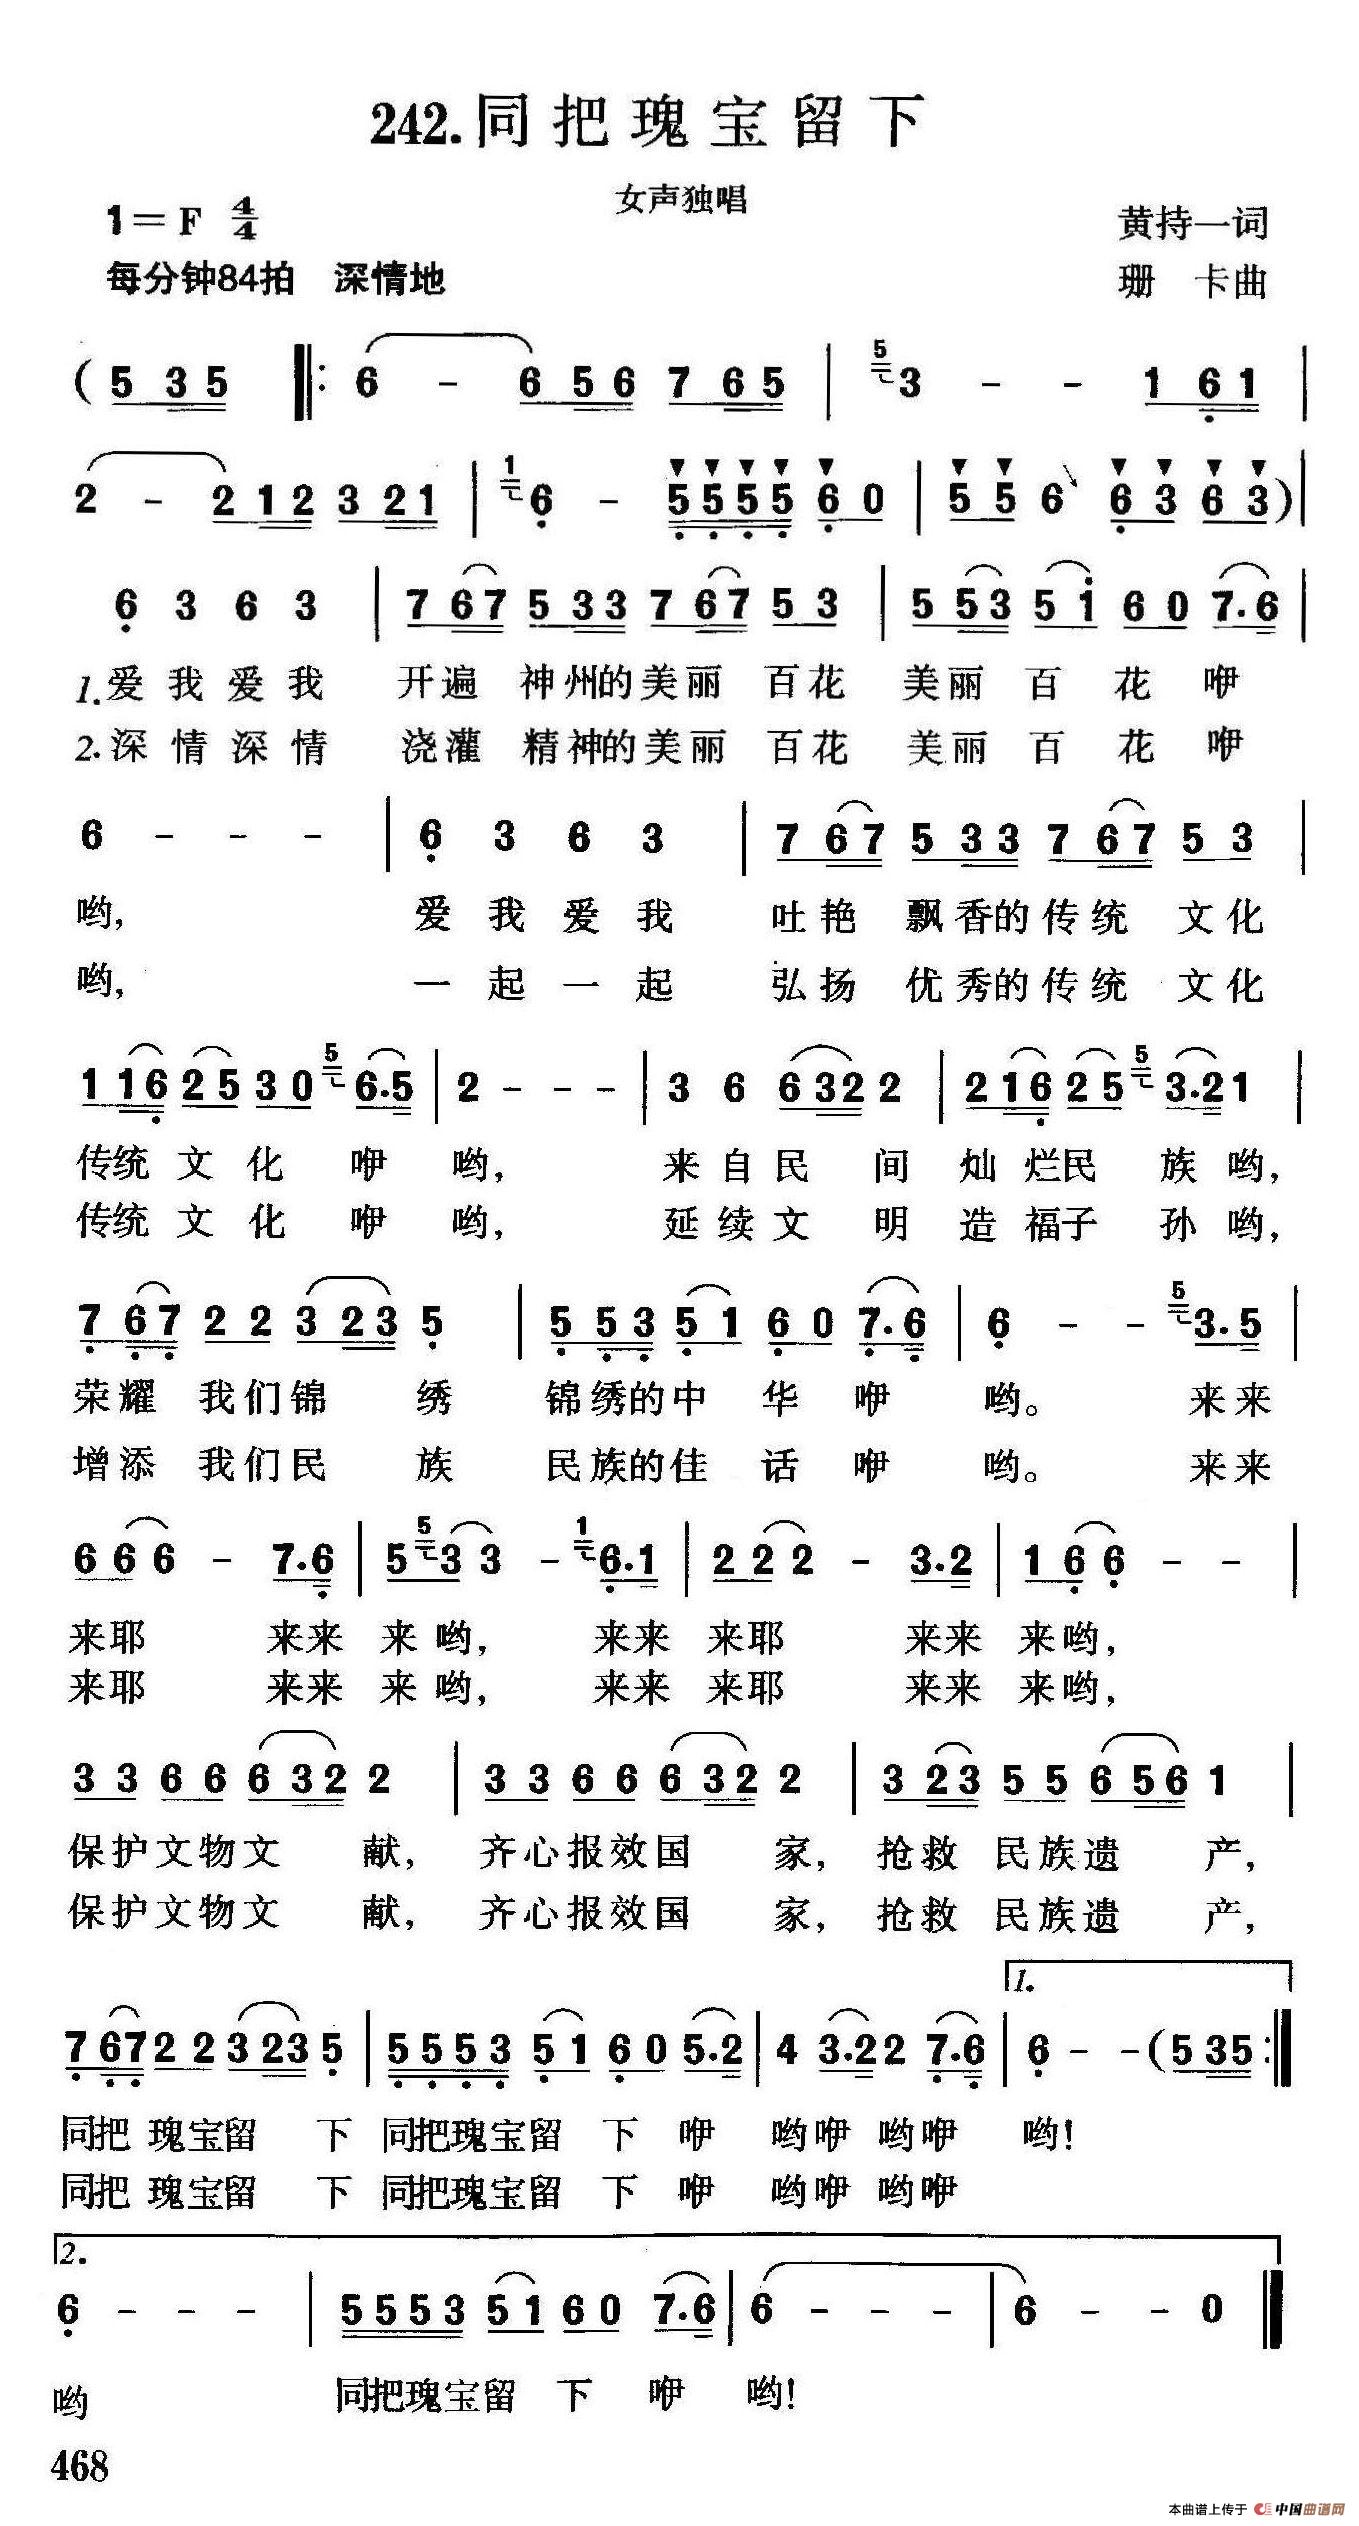 242.同把瑰宝留下
女声独唱
1=F 4/4
黄持一词
每分钟84拍 深情地
珊 卡曲
(5 3 5 ‖: 6 - 6 5 6 7 6 5 | 5 3 - - 1 6 1 |
2 - 2 1 2 3 2 1 | 1 6 - 5 5 5 5 6 0 | 5 5 6 6 3 6 3) |
6 3 6 3 | 7 6 7 5 3 3 7 6 7 5 3 | 5 5 3 5 1 6 0 7. 6 |
1.爱我爱我 开遍 神州的美丽 百花 美丽 百 花 咿
2.深情深情 浇灌 精神的美丽 百花 美丽 百 花 咿
6 - - - | 6 3 6 3 | 7 6 7 5 3 3 7 6 7 5 3 |
哟, 爱我爱我 吐艳 飘香的传统 文化
哟, 一起一起 弘扬 优秀的传统 文化
1 1 6 2 5 3 0 5 6. 5 | 2 - - - | 3 6 6 3 2 2 | 2 1 6 2 5 5 3. 2 1 |
传统 文 化 咿 哟, 来自民 间 灿 烂民 族哟,
传统 文 化 咿 哟, 延续文 明 造 福子 孙哟,
7 6 7 2 2 3 2 3 5 | 5 5 3 5 1 6 0 7. 6 | 6 - - 5 3. 5 |
荣耀 我们锦 绣 锦绣的中 华 咿 哟。 来来
增添 我们民 族 民族的佳 话 咿 哟。 来来
6 6 6 - 7. 6 | 5 5 3 3 - 1 6. 1 | 2 2 2 - 3. 2 | 1 6 6 - - |
来耶 来来 来 哟, 来来 来耶 来来 来哟,
来耶 来来 来 哟, 来来 来耶 来来 来哟,
3 3 6 6 6 3 2 2 | 3 3 6 6 6 3 2 2 | 3 2 3 5 5 6 5 6 1 |
保护文物文 献, 齐心报效国 家, 抢救 民族遗 产,
保护文物文 献, 齐心报效国 家, 抢救 民族遗 产,
1.
7 6 7 2 2 3 2 3 5 | 5 5 5 3 5 1 6 0 5. 2 | 4 3. 2 2 7. 6 | 6 - - (5 3 5 :‖
同把 瑰宝留 下 同把瑰宝留 下 咿 哟咿 哟咿 哟!
同把 瑰宝留 下 同把瑰宝留 下 咿 哟咿 哟咿
2.
6 - - - | 5 5 5 3 5 1 6 0 7. 6 | 6 - - - | 6 - - 0 ‖
哟 同把瑰宝留 下 咿 哟!
468
本曲谱上传于 中国曲谱网